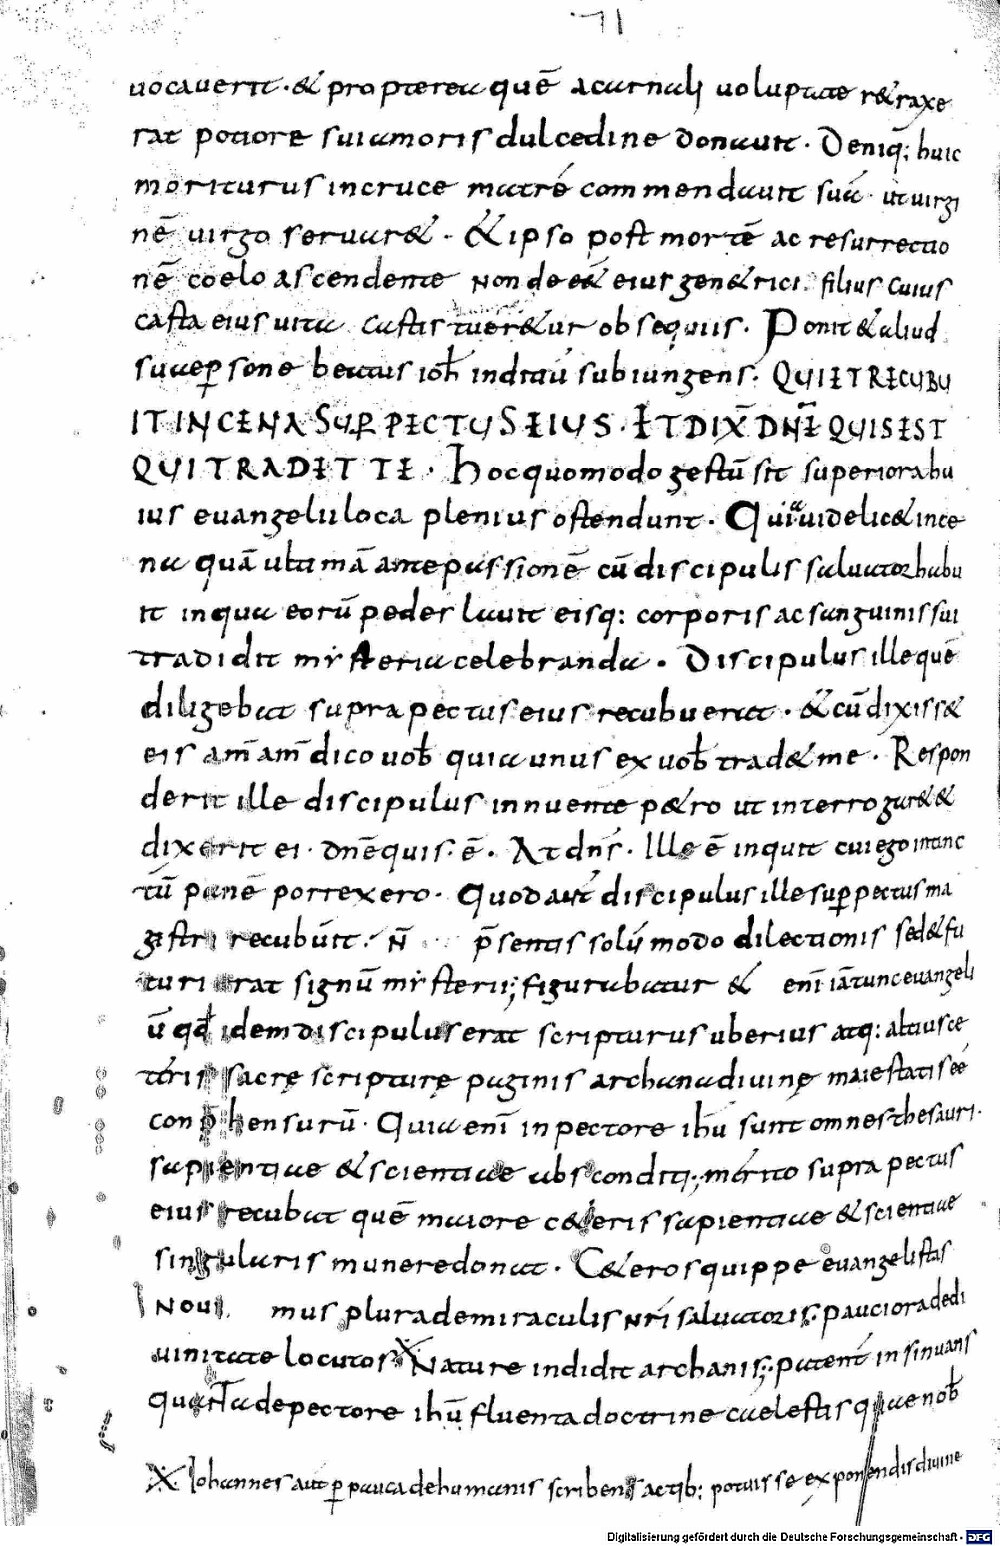 71
uocauerit · & propterea quē a carnali uoluptate r&raxe
rat potiore sui amoris dulcedine donauit · Deniq; huic
moriturus in cruce matrē commendauit suā · ut uirgi
nē uirgo seruar& · & ipso post mortē ac resurrectio
nē coelo ascendente non de e& eius gen&rici · filius cuius
casta eius uita castis tuer&ur obsequiis · Ponit & aliud
suae psone beatus ioh indiciū subiungens · QUI ET RECUBU
IT IN CENA SUP PECTUS EIUS · ET DIX̄ DN̄E QUIS EST
QUI TRADET TE · Hoc quomodo gestū sit superiora hu
ius euangelii loca plenius ostendunt · Quia uidelic& in ce
na quā ultimā ante passionē cū discipulis saluator habu
it in qua eorū pedes lauit eisq; corporis ac sanguinis sui
tradidit mysteria celebranda · Discipulus ille quē
diligebat supra pectus eius recubuerat · & cū dixiss&
eis am̄ am̄ dico uob quia unus ex uob trad& me · Respon
derit ille discipulus innuente p&ro ut interrogar& &
dixerit ei · dn̄e quis · ē · At dn̄s · Ille ē inquit cui ego intinc
tū panē porrexero · Quod aut discipulus ille sup pectus ma
gistri recubuit · n̄ p̄sentis solū modo dilectionis sed & fu
turi erat signū mysterii; figurabatur & enī iā tunc euangeli
ū qd idem discipulus erat scripturus uberius atq; altius ce
teris sacrę scripturę paginis archana diuinę maiestatis eē
conp̄hensurū · Quia enī in pectore ihū sunt omnes thesauri ·
sapientiae & scientiae absconditi; merito supra pectus
eius recubat quē maiore c&eris sapientiae & scientiae
singularis munere donat · C&eros quippe euangelistas
Noui mus plura de miraculis nr̄i saluatoris · pauciora de di
uinitate locutos Nature indidit archanis; patent in sinuans
quanta de pectore ihū fluenta doctrine caelestis quae nob
Iohannes aut p pauca de humanis scribens actib; potuisse exponendis diuine
Digitalisierung gefördert durch die Deutsche Forschungsgemeinschaft - DFG